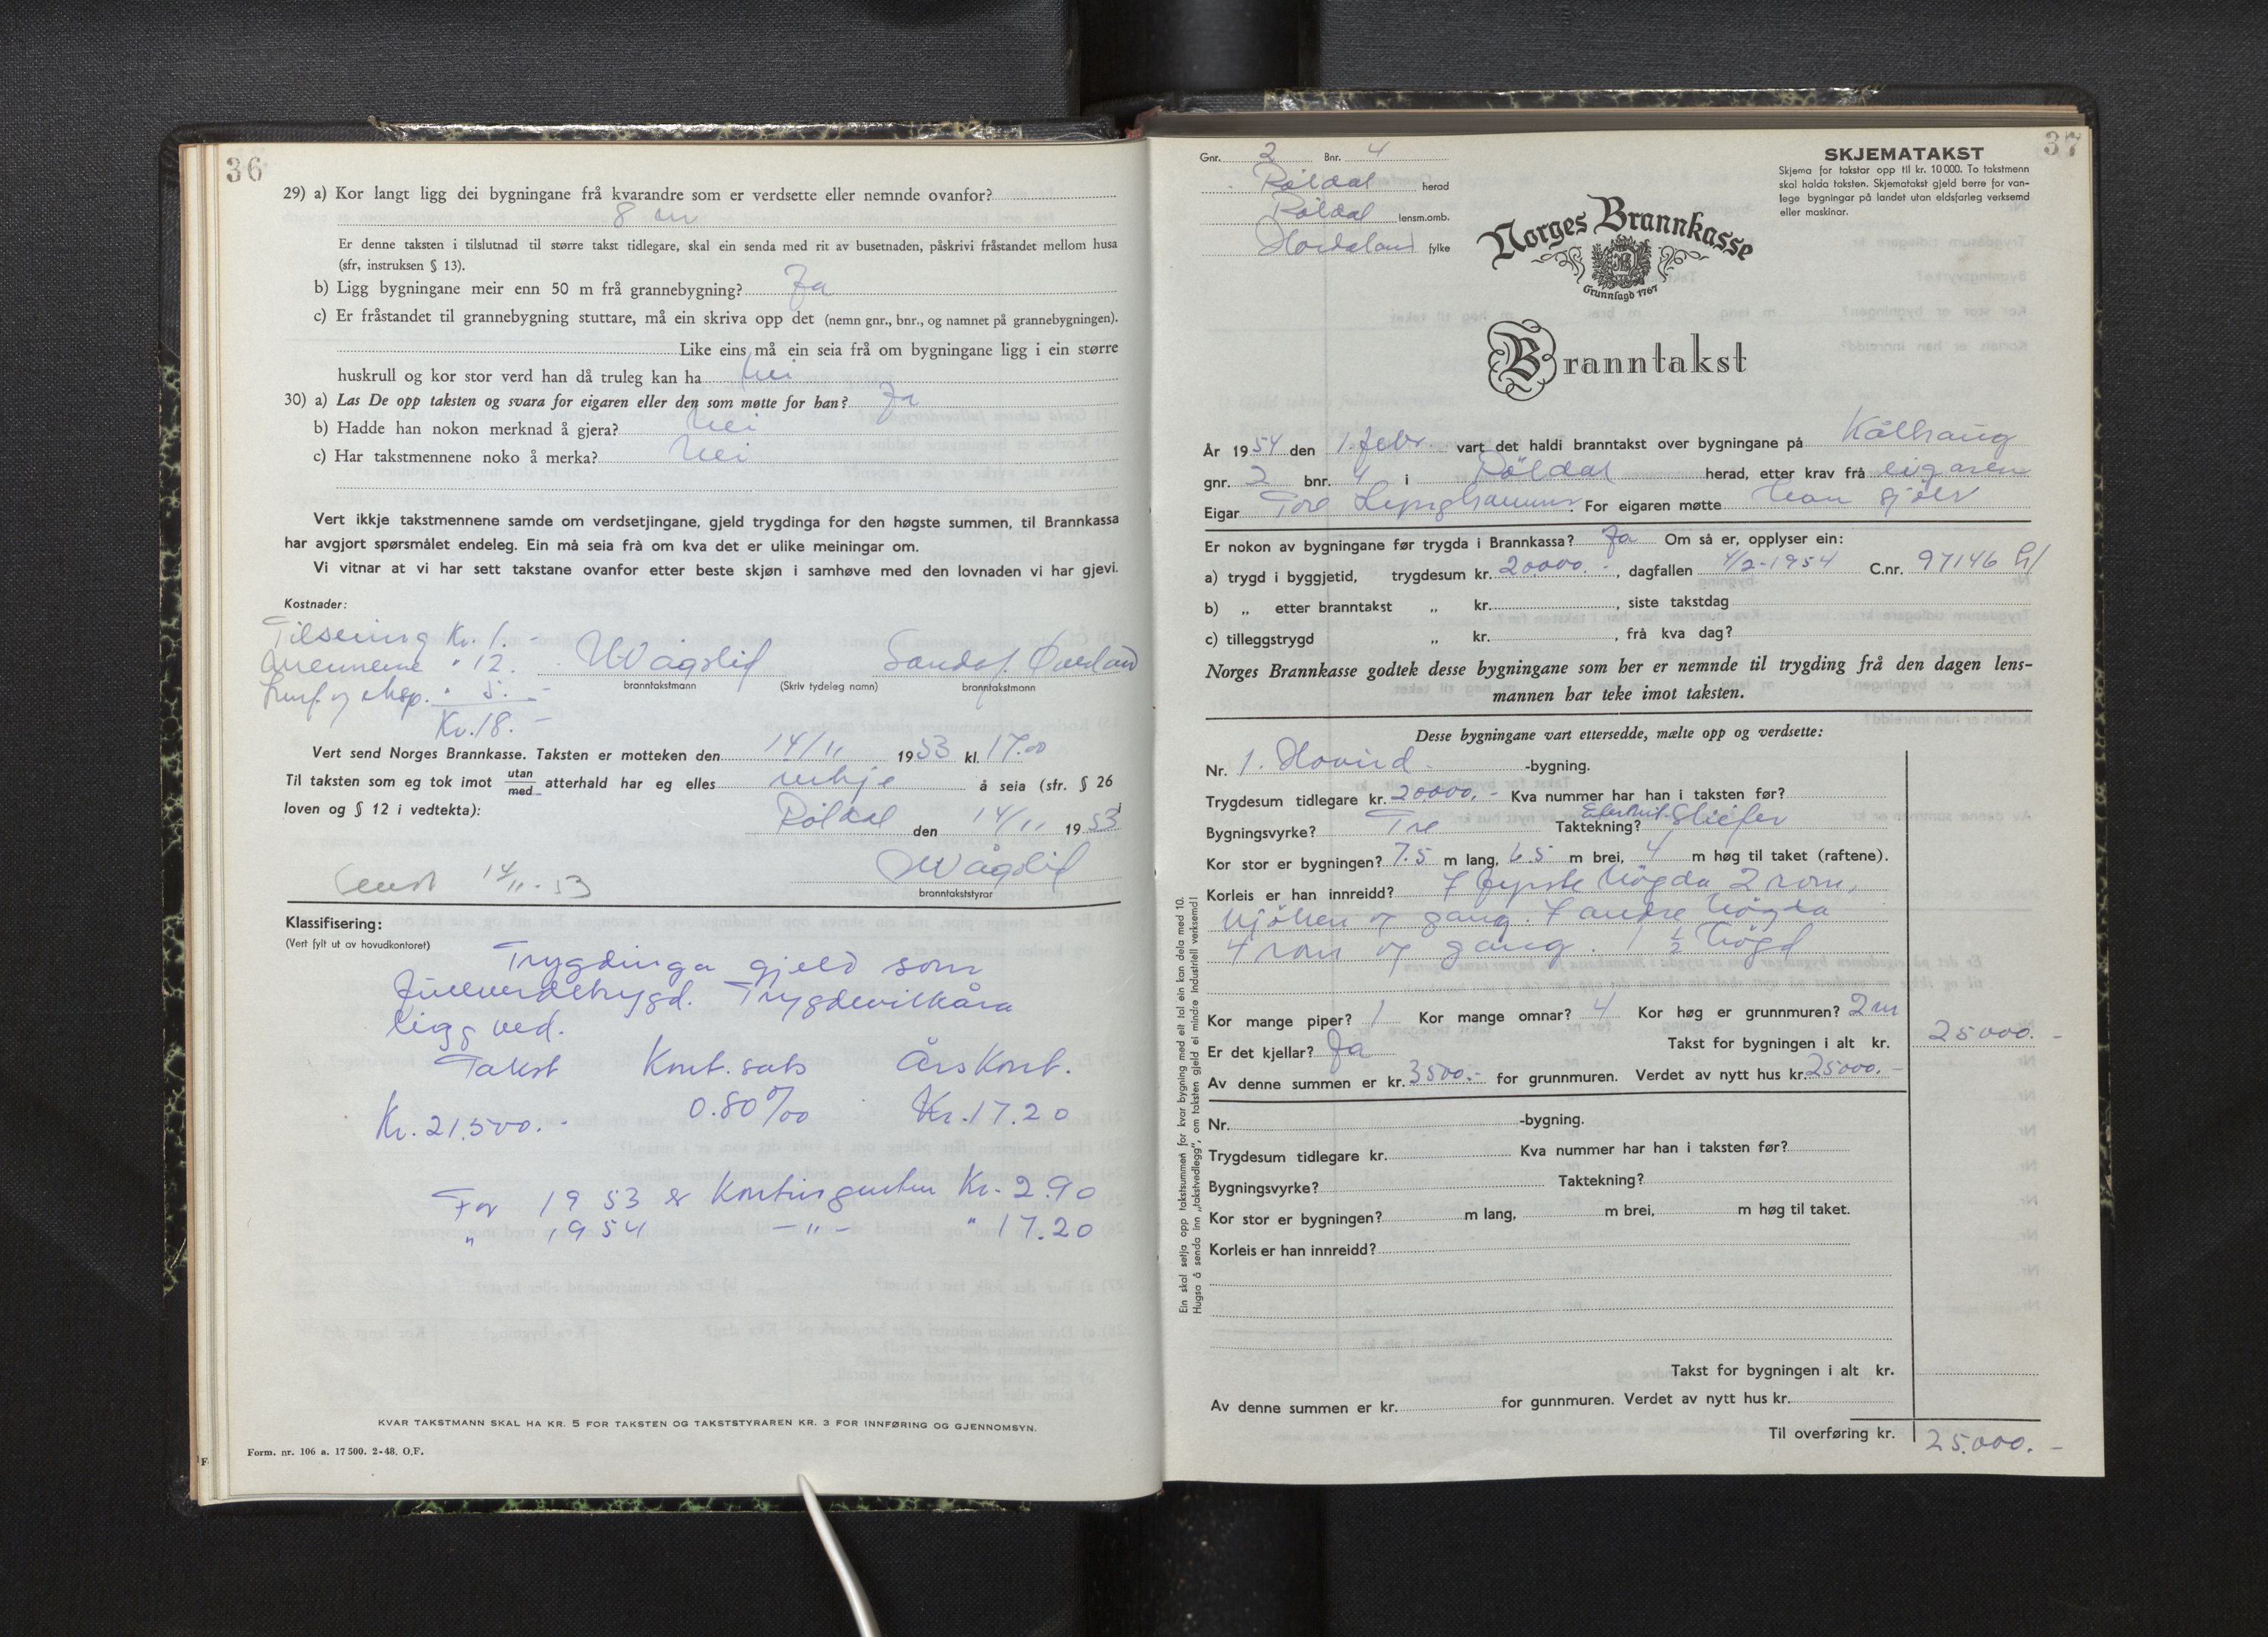 36
29) a) Kor langt ligg dei bygningane frå kvarandre som er verdsette eller nemnde ovanfor?
8 m
Er denne taksten i tilslutnad til større takst tidlegare, skal ein senda med rit av busetnaden, påskrivi fråstandet mellom husa
(sfr, instruksen § 13).
b) Ligg bygningane meir enn 50 m frå grannebygning? Ja
c) Er fråstandet til grannebygning stuttare, må ein skriva opp det (nemn gnr., bnr., og namnet på grannebygningen).
Like eins må ein seia frå om bygningane ligg i ein større
huskrull og kor stor verd han då truleg kan ha nei
30) a) Las De opp taksten og svara for eigaren eller den som møtte for han? Ja
b) Hadde han nokon merknad å gjera? Nei
c) Har takstmennene noko å merka? Nei
Vert ikkje takstmennene samde om verdsetjingane, gjeld trygdinga for den høgste summen, til Brannkassa
har avgjort spørsmålet endeleg. Ein må seia frå om kva det er ulike meiningar om.
Vi vitnar at vi har sett takstane ovanfor etter beste skjøn i samhøve med den lovnaden vi har gjevi.
Kostnader:
Tilseiing Kr. 1. -
Mennene " 12. -
" 5. -
Kr. 18. -
Vågslid Sandof Överland
branntakstmann (Skriv tydeleg namn) branntakstmann
Vert send Norges Brannkasse. Taksten er motteken den 14/11 1953 kl. 17.00
Til taksten som eg tok imot utan/med atterhald har eg elles inkje å seia (sfr. § 26
loven og § 12 i vedtekta):
Röldal den 14/11 1953
Vågslid
branntakststyrar
Sendt 14/11-53
Klassifisering:
(Vert fylt ut av hovudkontoret)
Trygdinga gjeld som
fullverdetrygd. Trygdevilkåra
ligg ved.
Takst Kont.sats Årskont.
Kr. 21.500.- 0.80‰ Kr. 17.20
For 1953 er Kontingenten Kr. 2.90
" 1954 -"- " 17.20
KVAR TAKSTMANN SKAL HA KR. 5 FOR TAKSTEN OG TAKSTSTYRAREN KR. 3 FOR INNFØRING OG GJENNOMSYN.
Form. nr. 106 a. 17 500. 2-48. O.F.
37
Gnr. 2 Bnr. 4
Röldal herad
Röldal lensm.omb.
Hordaland fylke
SKJEMATAKST
Skjema for takstar opp til kr. 10 000. To takstmenn
skal halda taksten. Skjematakst gjeld berre for van-
lege bygningar på landet utan eldsfarleg verksemd
eller maskinar.
Norges Brannkasse
Grunnlagd 1767
Branntakst
År 1954 den 1. febr. vart det haldi branntakst over bygningane på Kålhaug
gnr. 2 bnr. 4 i Röldal herad, etter krav frå eigaren
Eigar Tore Lynghammar. For eigaren møtte han sjölv
Er nokon av bygningane før trygda i Brannkassa? Ja Om så er, opplyser ein:
a) trygd i byggjetid, trygdesum kr. 20000.-, dagfallen 4/2-1954 C.nr. 97146
b) „ etter branntakst „ kr. , siste takstdag
c) tilleggstrygd „ kr. , frå kva dag?
Norges Brannkasse godtek desse bygningane som her er nemnde til trygding frå den dagen lens-
mannen har teke imot taksten.
Desse bygningane vart ettersedde, mælte opp og verdsette:
Nr. 1. Hovud- -bygning.
Trygdesum tidlegare kr. 20000.- Kva nummer har han i taksten før?
Bygningsvyrke? Tre Taktekning? Eternit-Skiefer
Kor stor er bygningen? 7.5 m lang, 6.5 m brei, 4 m høg til taket (raftene).
Korleis er han innreidd? I fyrste högda 2 rom,
kjöken og gang. I andre högda
4 rom og gang. 1 ½ högd
Kor mange piper? 1 Kor mange omnar? 4 Kor høg er grunnmuren? 2 m
Er det kjellar? Ja Takst for bygningen i alt kr. 25000.-
Av denne summen er kr. 3500.- for grunnmuren. Verdet av nytt hus kr. 25000.-
Nr. -bygning.
Trygdesum tidlegare kr. Kva nummer har han i taksten før?
Bygningsvyrke? Taktekning?
Kor stor er bygningen? m lang, m brei, m høg til taket.
Korleis er han innreidd?
Takst for bygningen i alt kr.
Av denne summen er kr. for gunnmuren. Verdet av nytt hus kr.
Til overføring kr. 25.000.-
Ein skal setja opp takstsummen for kvar bygning med eit tal ein kan dela med 10.
Hugsa å senda inn „takstvedlegg", om taksten gjeld ei mindre industriell verksemd!